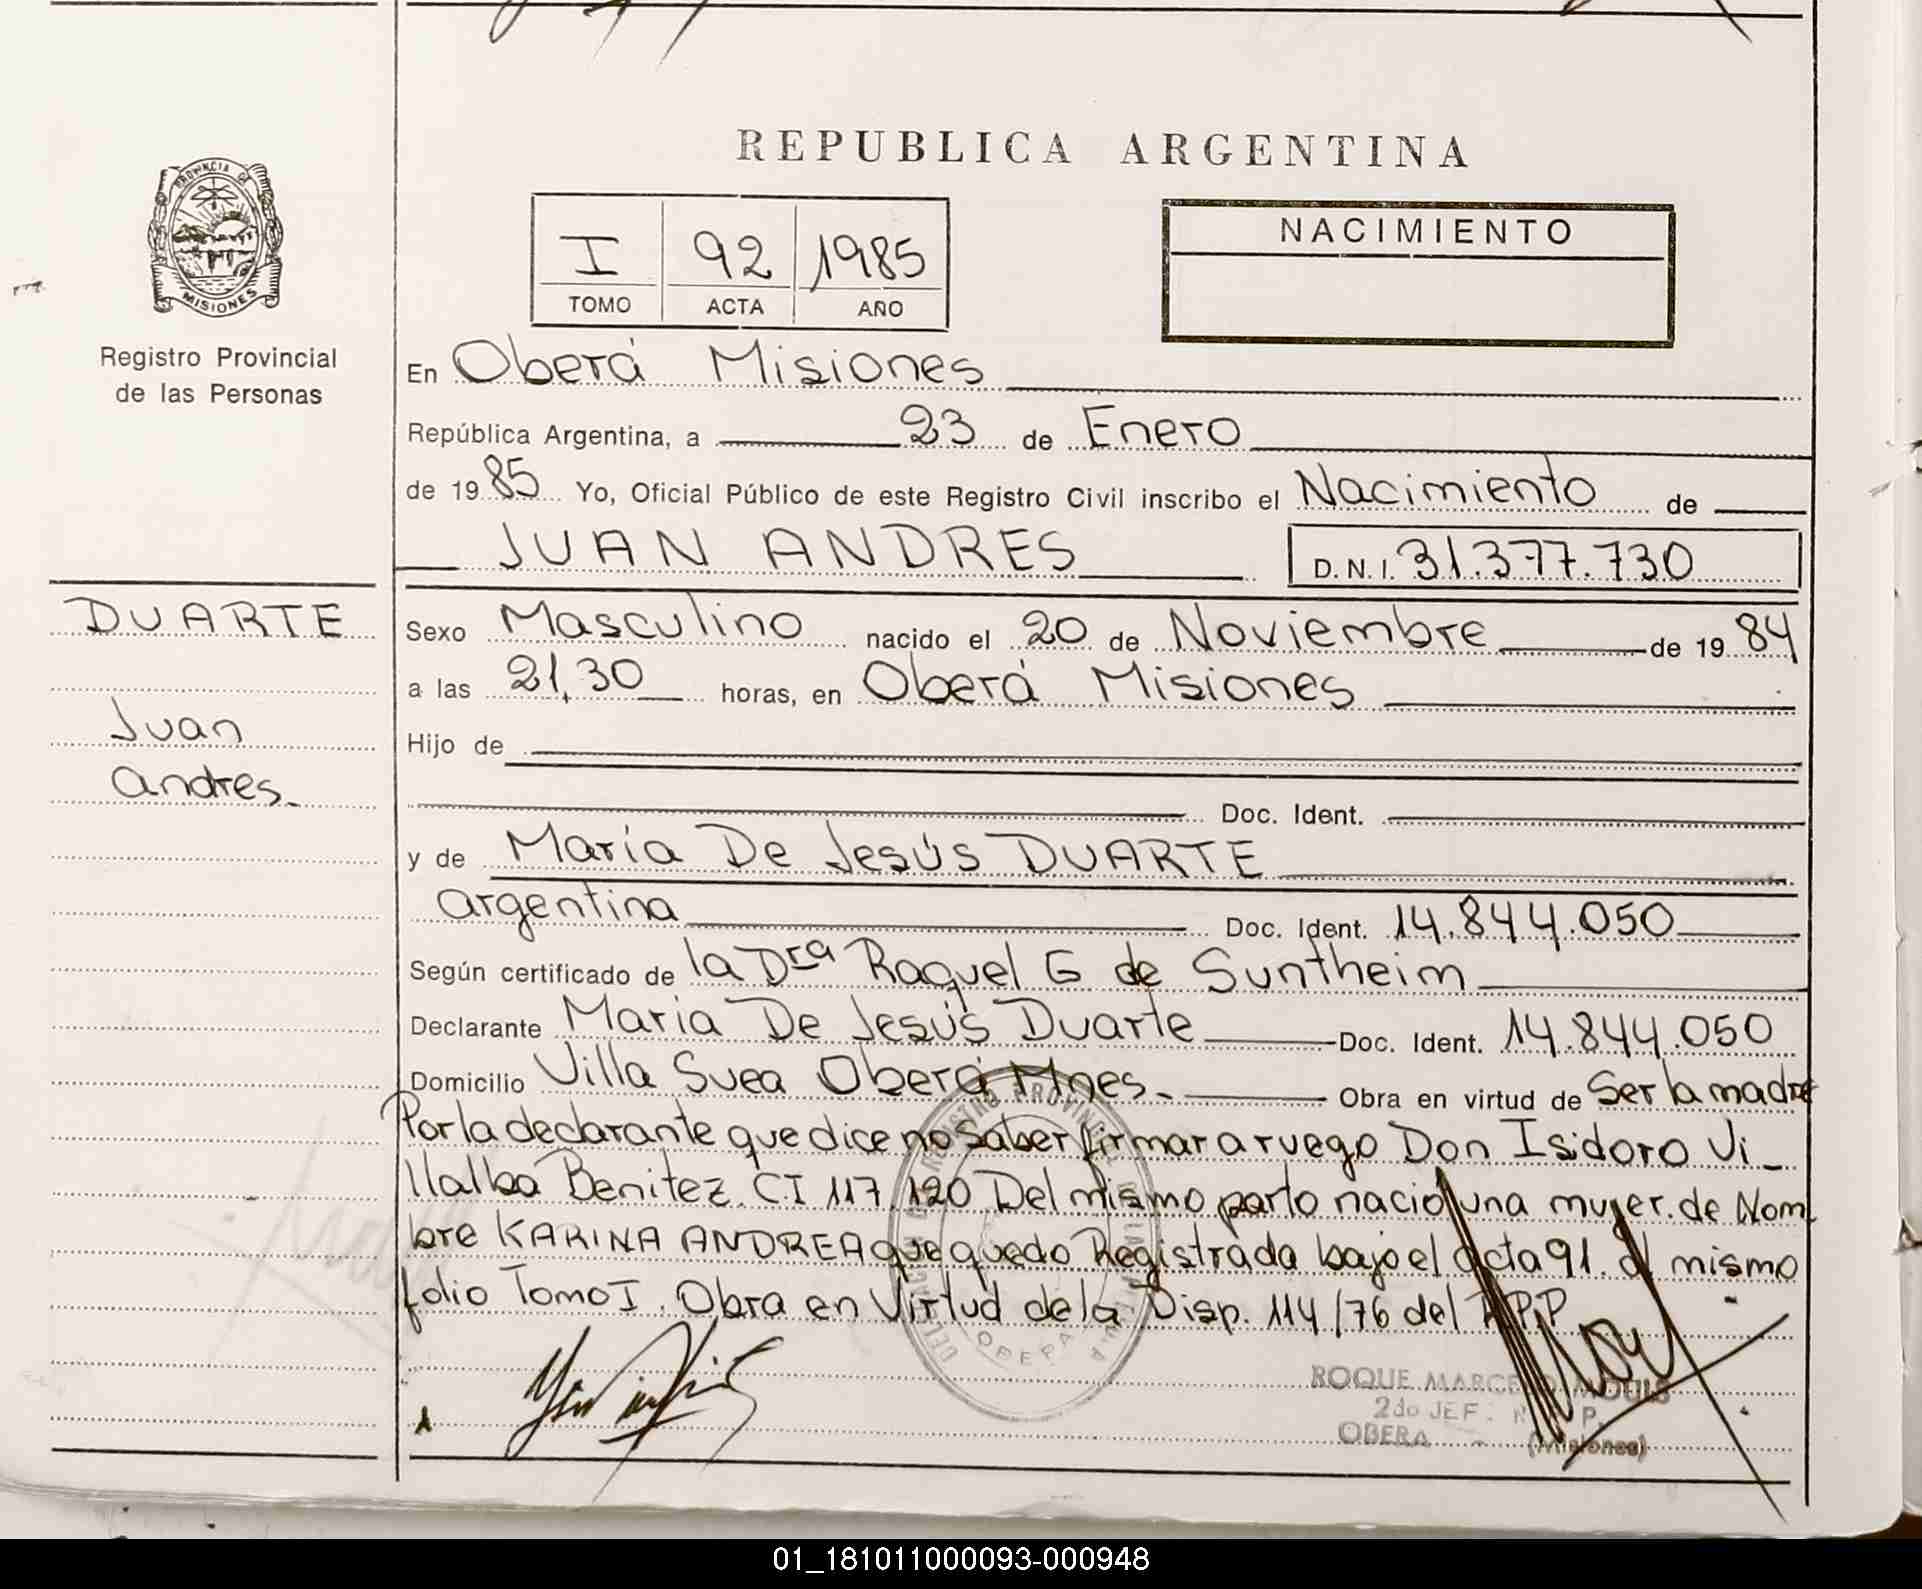 REPUBLICA ARGENTINA
PROVINCIA DE
MISIONES
Registro Provincial
de las Personas
I 92 1985
TOMO ACTA AÑO
NACIMIENTO
En Oberá Misiones
República Argentina, a 23 de Enero
de 1985 Yo, Oficial Público de este Registro Civil inscribo el Nacimiento de
JUAN ANDRES D.N.I. 31.377.730
DUARTE
Juan
Andres.
Sexo Masculino nacido el 20 de Noviembre de 1984
a las 21,30 horas, en Oberá Misiones
Hijo de
Doc. Ident.
y de María De Jesús DUARTE
argentina Doc. Ident. 14.844.050
Según certificado de la Dra Raquel G de Suntheim
Declarante Maria De Jesús Duarte Doc. Ident. 14.844.050
Domicilio Villa Svea Oberá Mnes. Obra en virtud de Ser la madre
Por la declarante que dice no saber firmar a ruego Don Isidoro Vi-
llalba Benitez. C.I 117.120. Del mismo parto nacio una mujer. de Nom
bre KARINA ANDREA que quedo Registrada bajo el acta 91. del mismo
folio Tomo I. Obra en Virtud de la Disp. 114/76 del RPP
ROQUE MARCELO
2do JEF.
OBERA (Misiones)
01_181011000093-000948